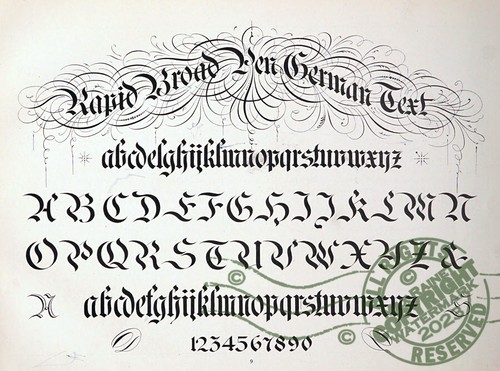 Rapid Broad Pen German Text
abcdefghijklmnopqrstuvwxyz
ABCDEFGHIJKLMN
OPQRSTUVWXYZ&
abcdefghijklmnopqrstuvwxyz
1234567890
9
ALL RIGHTS
COPYRIGHT
WATERMARK
RESERVED